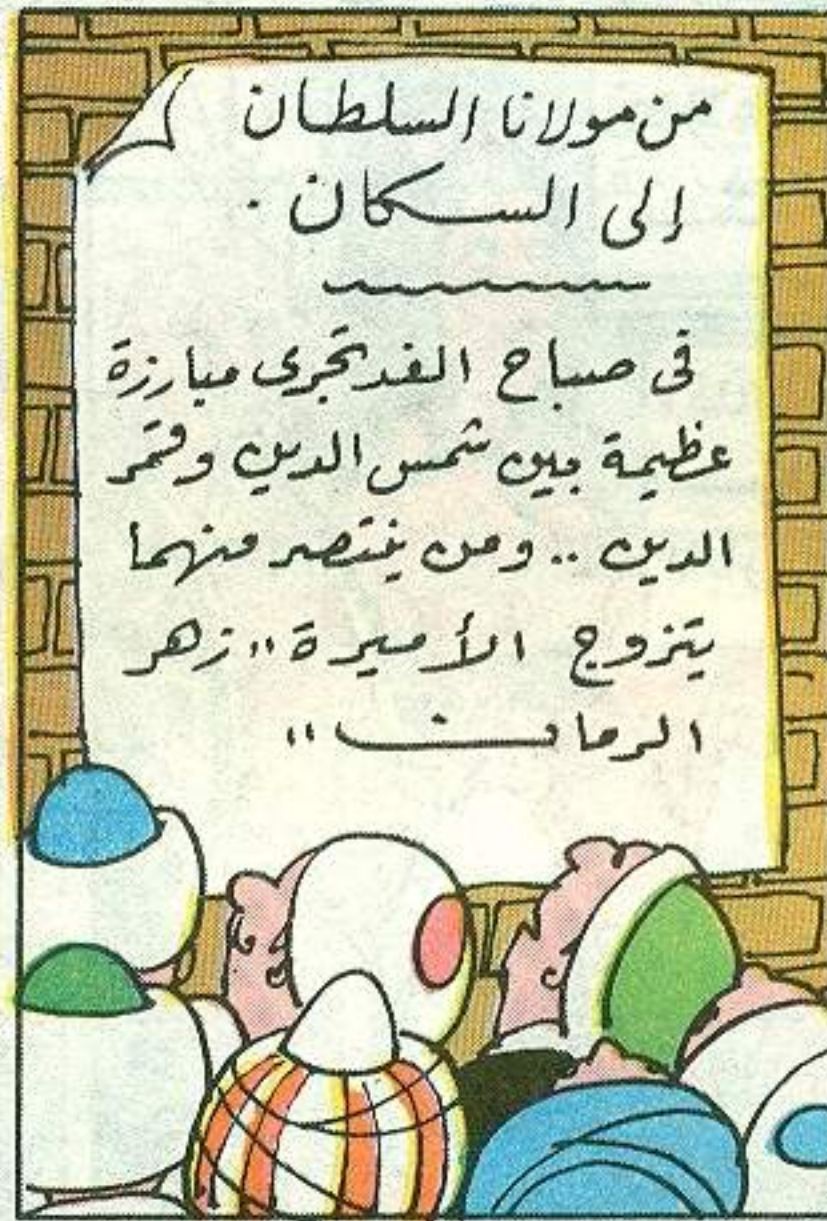 من مولانا السلطان
إلى السكان .
فى صباح الغد تجرى مبارزة
عظيمة بين شمس الدين وقمر
الدين .. ومن ينتصر منهما
يتزوج الأميرة "زهر
الرمان"